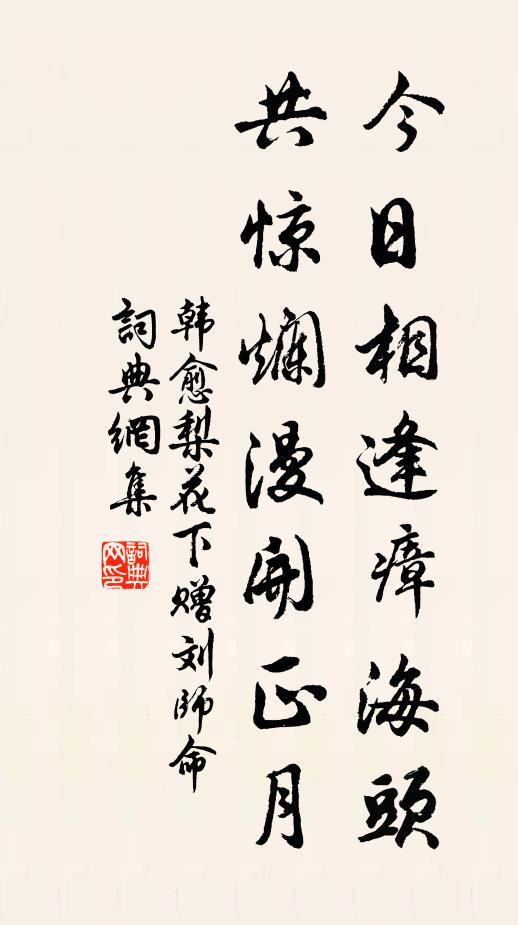 今日相逢瘴海頭
共惊爛漫開正月
韩愈梨花下赠刘師命
詞典網集
詞典網印